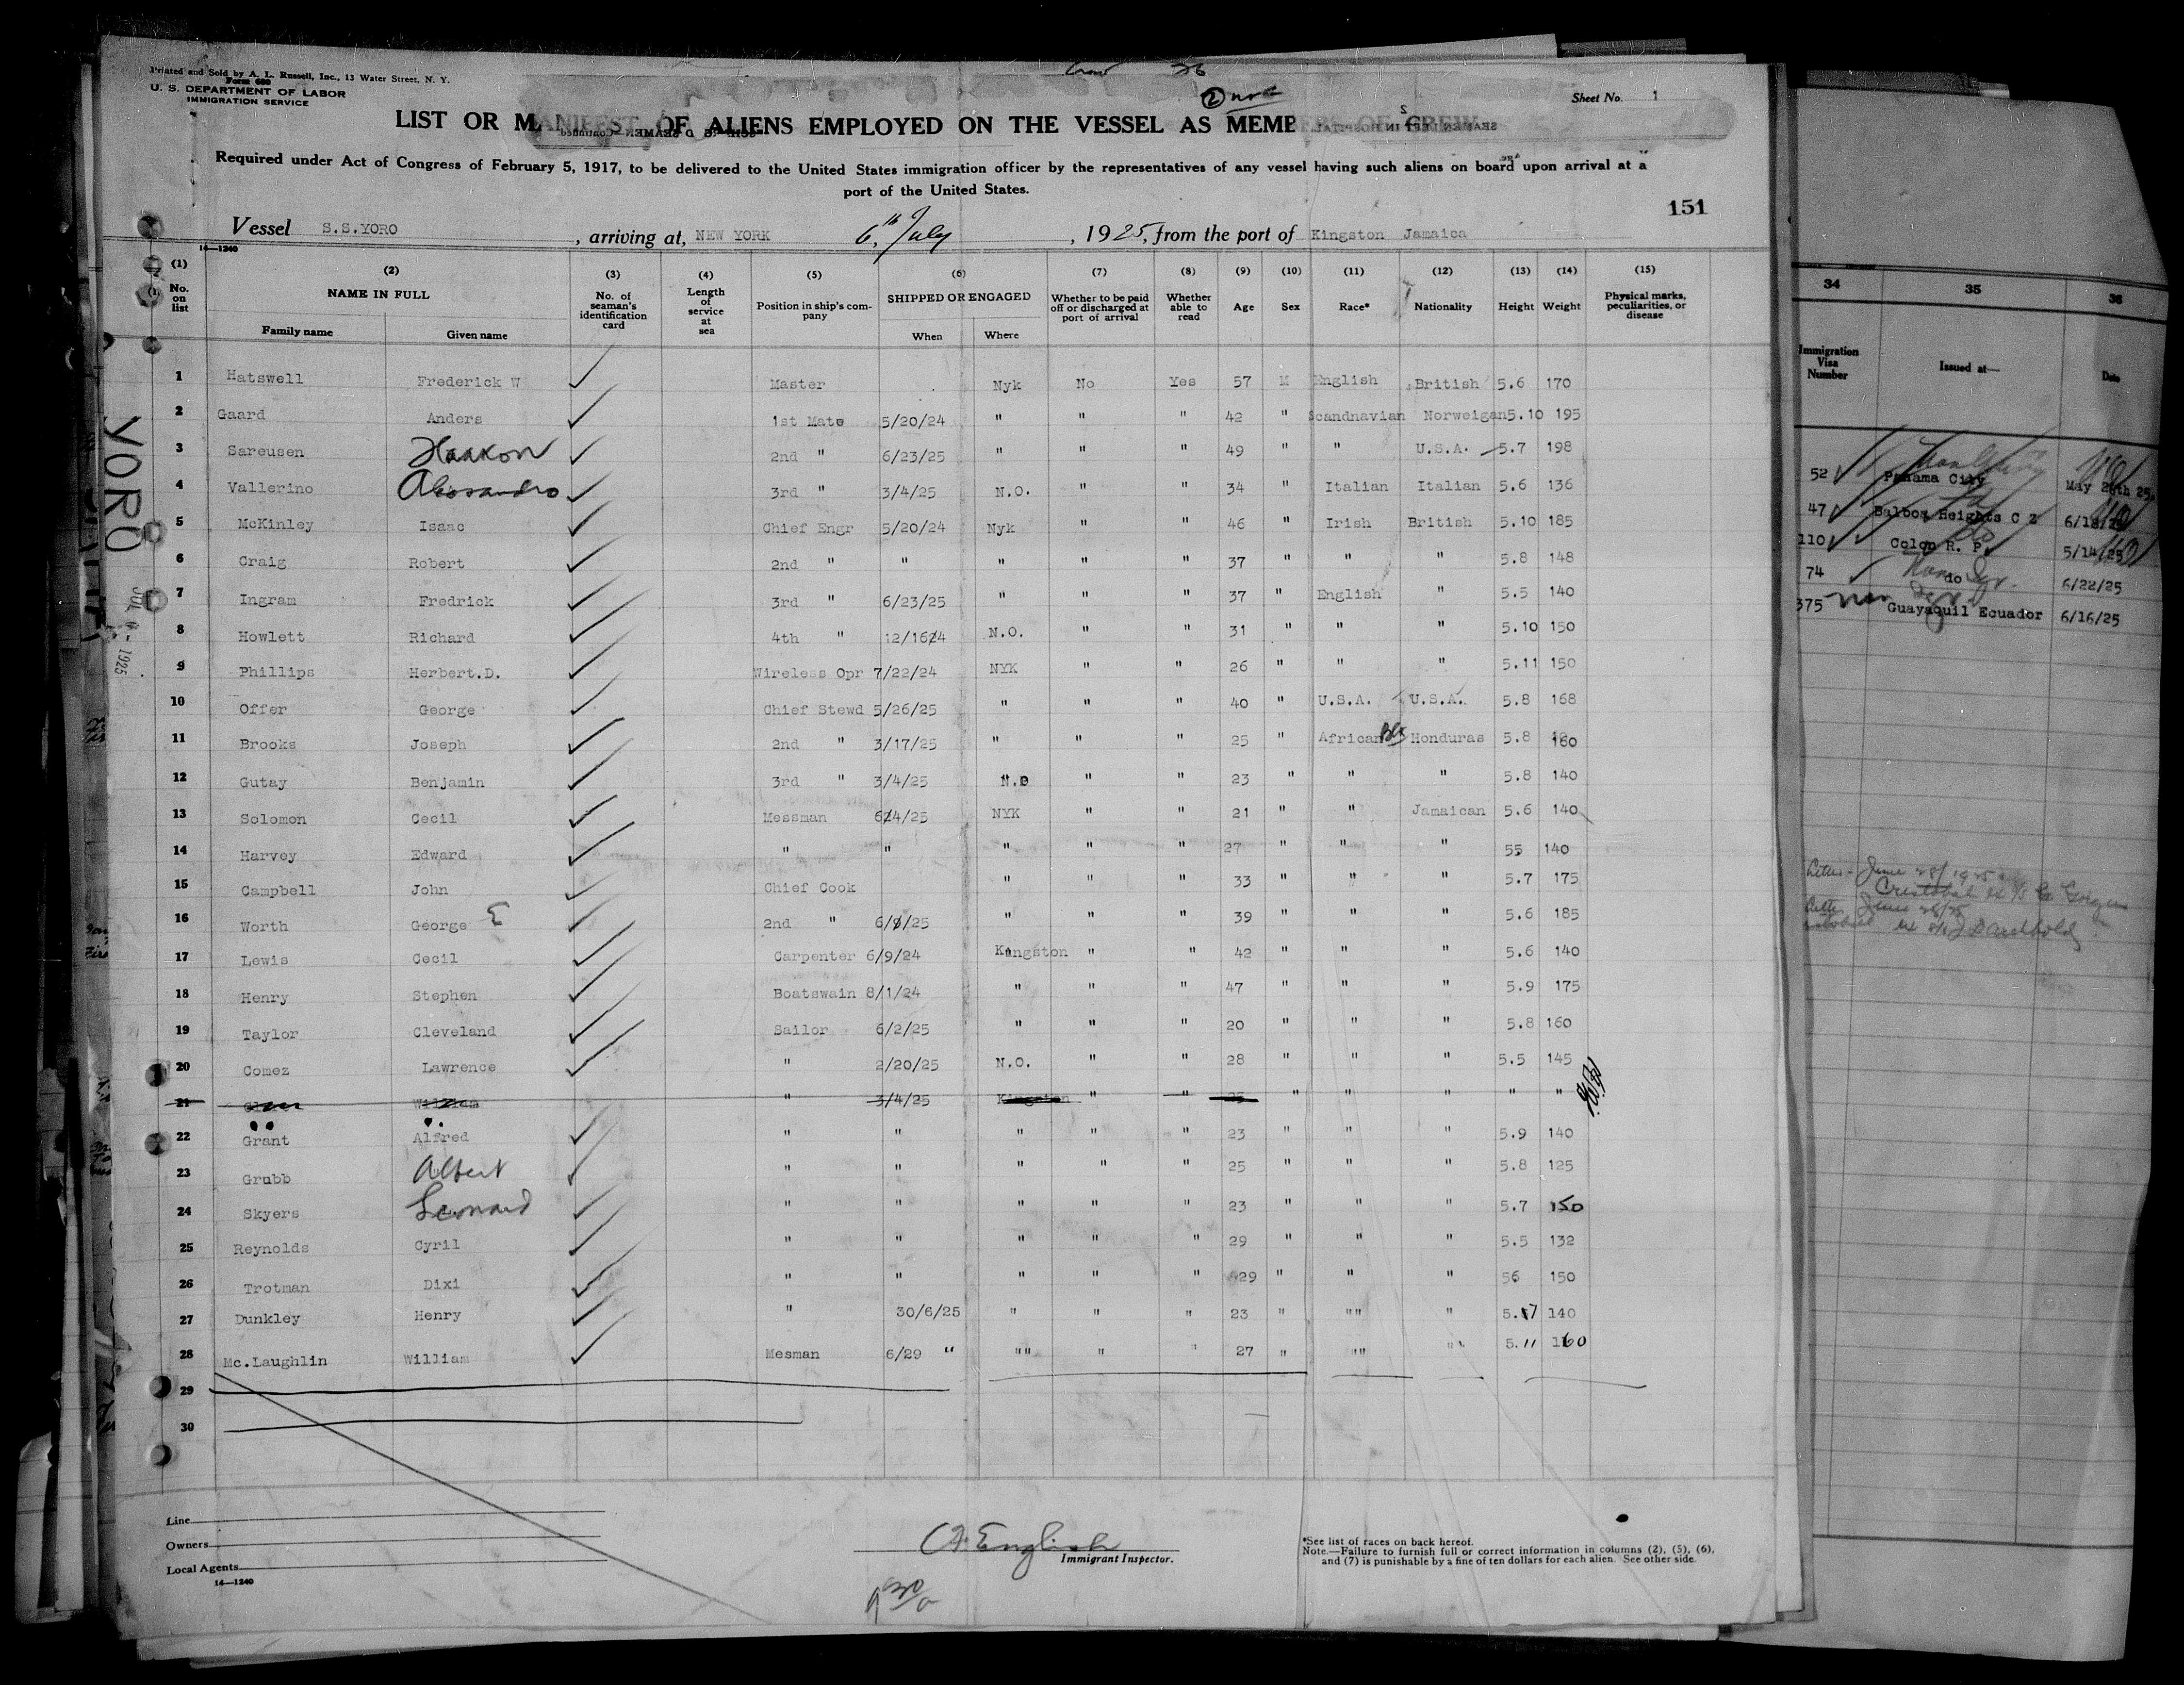 Printed and Sold by A. L. Russell, Inc., 13 Water Street, N. Y.
Form 680
U. S. DEPARTMENT OF LABOR
IMMIGRATION SERVICE
Sheet No. 1
LIST OR MANIFEST OF ALIENS EMPLOYED ON THE VESSEL AS MEMBERS OF CREW
Required under Act of Congress of February 5, 1917, to be delivered to the United States immigration officer by the representatives of any vessel having such aliens on board upon arrival at a
port of the United States.
151
Vessel S.S.YORO, arriving at, NEW YORK 6th July, 1925, from the port of Kingston Jamaica
14—1240
(1) (2) (3) (4) (5) (6) (7) (8) (9) (10) (11) (12) (13) (14) (15)
No. on list NAME IN FULL Family name Given name No. of seaman's identification card Length of service at sea Position in ship's company SHIPPED OR ENGAGED When Where Whether to be paid off or discharged at port of arrival Whether able to read Age Sex Race* Nationality Height Weight Physical marks, peculiarities, or disease
1 Hatswell Frederick W Master Nyk No Yes 57 M English British 5.6 170
2 Gaard Anders 1st Mate 5/20/24 " " " 42 " Scandnavian Norweigan 5.10 195
3 Sareusen Haakon 2nd " 6/23/25 " " " 49 " " U.S.A. 5.7 198
4 Vallerino Alessandro 3rd " 3/4/25 N.O. " " 34 " Italian Italian 5.6 136
5 McKinley Isaac Chief Engr 5/20/24 Nyk " " 46 " Irish British 5.10 185
6 Craig Robert 2nd " " " " " 37 " " " 5.8 148
7 Ingram Fredrick 3rd " 6/23/25 " " " 37 " English " 5.5 140
8 Howlett Richard 4th " 12/1624 N.O. " " 31 " " " 5.10 150
9 Phillips Herbert.D. Wireless Opr 7/22/24 NYK " " 26 " " " 5.11 150
10 Offer George Chief Stewd 5/26/25 " " " 40 " U.S.A. U.S.A. 5.8 168
11 Brooks Joseph 2nd " 3/17/25 " " " 25 " African Blk Honduras 5.8 160
12 Gutay Benjamin 3rd " 3/4/25 N.O " " 23 " " " 5.8 140
13 Solomon Cecil Messman 624/25 NYK " " 21 " " Jamaican 5.6 140
14 Harvey Edward " " " " " 27 " " " 55 140
15 Campbell John Chief Cook " " " 33 " " " 5.7 175
16 Worth George E 2nd " 6/9/25 " " " 39 " " " 5.6 185
17 Lewis Cecil Carpenter 6/9/24 Kingston " " 42 " " " 5.6 140
18 Henry Stephen Boatswain 8/1/24 " " " 47 " " " 5.9 175
19 Taylor Cleveland Sailor 6/2/25 " " " 20 " " " 5.8 160
20 Comez Lawrence " 2/20/25 N.O. " " 28 " " " 5.5 145
21 William " 3/4/25 Kingston " " 25 " " " " "
22 Grant Alfred " " " " " 23 " " " 5.9 140
23 Grubb Albert " " " " " 25 " " " 5.8 125
24 Skyers Leonard " " " " " 23 " " " 5.7 150
25 Reynolds Cyril " " " " " 29 " " " 5.5 132
26 Trotman Dixi " " " " " 29 " " " 56 150
27 Dunkley Henry " 30/6/25 " " " 23 " "" " 5.7 140
28 Mc.Laughlin William Mesman 6/29 " "" " " 27 " "" " 5.11 160
29
30
Line
Owners
Local Agents
14—1240
English
Immigrant Inspector.
9 30/a
*See list of races on back hereof.
Note.—Failure to furnish full or correct information in columns (2), (5), (6),
and (7) is punishable by a fine of ten dollars for each alien. See other side.
YORO
JUL 6 - 1925
34 35 36
Immigration Visa Number Issued at— Date
52 Panama City May 26th 25.
47 Balboa Heights C Z 6/18/25
110 Colon R. P. 5/14/25
74 do 6/22/25
375 Guayaquil Ecuador 6/16/25